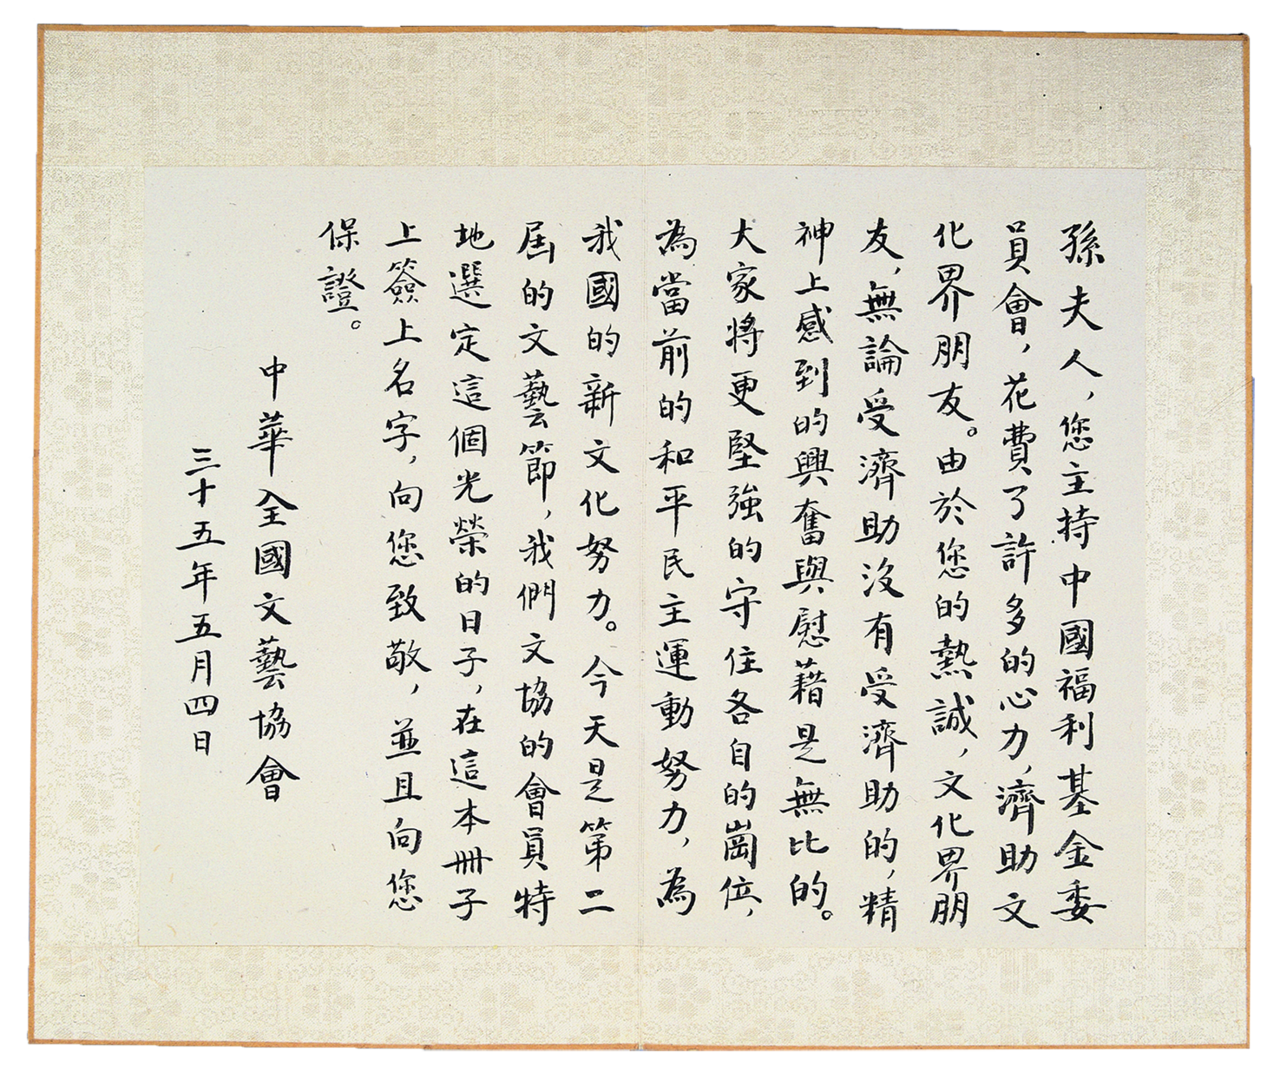 孫夫人，您主持中國福利基金委
員會，花費了許多的心力，濟助文
化界朋友。由於您的熱誠，文化界朋
友，無論受濟助沒有受濟助的，精
神上感到的興奮與慰藉是無比的。
大家將更堅強的守住各自的崗位，
為當前的和平民主運動努力，為
我國的新文化努力。今天是第二
屆的文藝節，我們文協的會員特
地選定這個光榮的日子，在這本冊子
上簽上名字，向您致敬，並且向您
保證。
中華全國文藝協會
三十五年五月四日